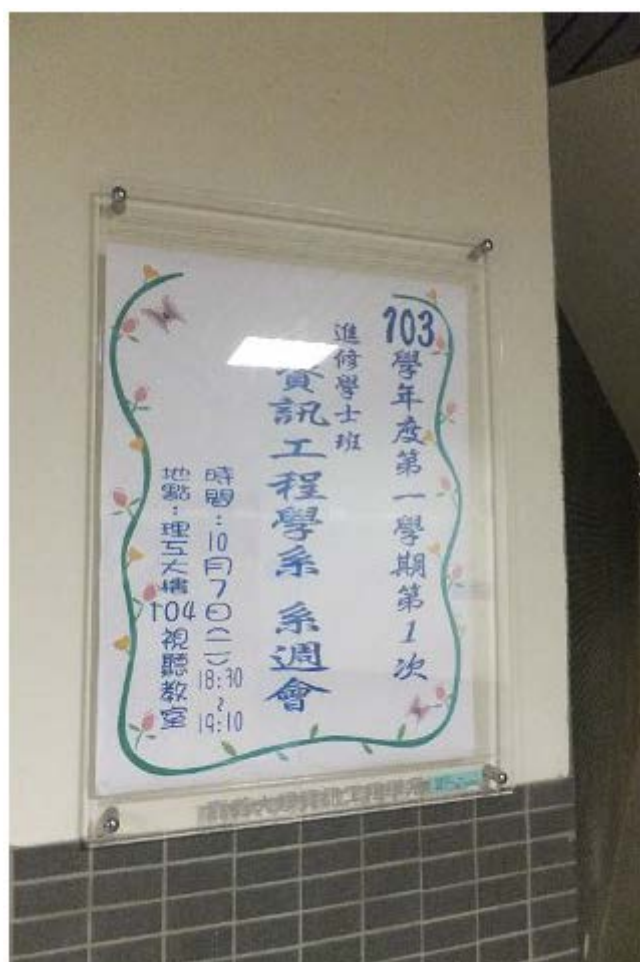 103學年度第一學期第1次
進修學士班
資訊工程學系 系週會
時間：10月7日(二)18:30
~
19:10
地點：理工大樓104視聽教室